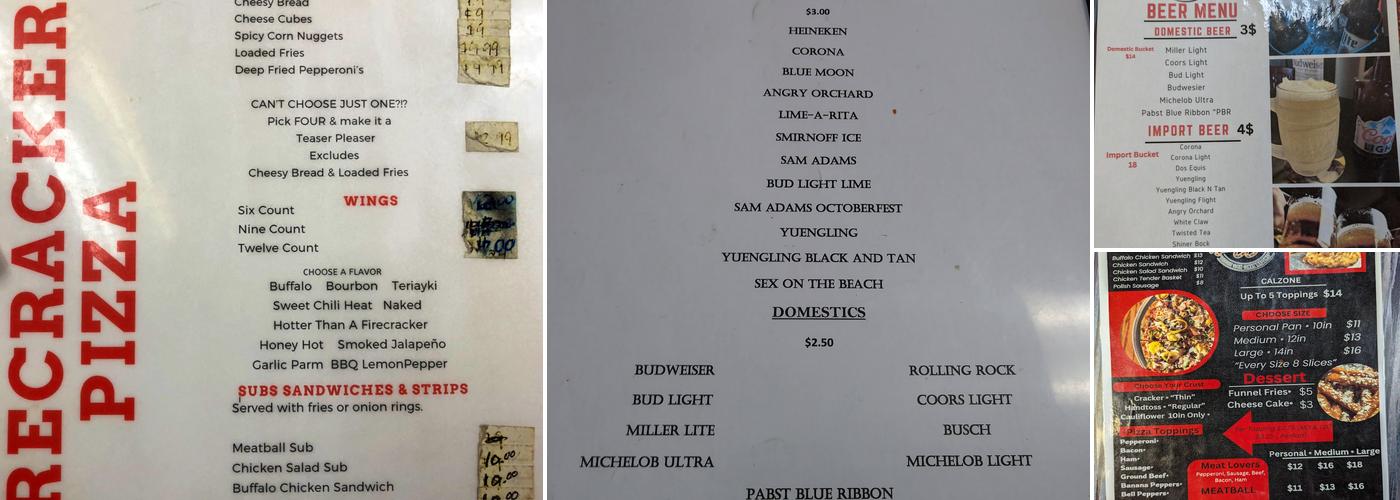 RECRACKER
PIZZA
Cheesy Bread
Cheese Cubes
Spicy Corn Nuggets
Loaded Fries
Deep Fried Pepperoni's
CAN'T CHOOSE JUST ONE?!?
Pick FOUR & make it a
Teaser Pleaser
Excludes
Cheesy Bread & Loaded Fries
WINGS
Six Count
Nine Count
Twelve Count
CHOOSE A FLAVOR
Buffalo Bourbon Teriayki
Sweet Chili Heat Naked
Hotter Than A Firecracker
Honey Hot Smoked Jalapeño
Garlic Parm BBQ LemonPepper
SUBS SANDWICHES & STRIPS
Served with fries or onion rings.
Meatball Sub
Chicken Salad Sub
Buffalo Chicken Sandwich
$3.00
HEINEKEN
CORONA
BLUE MOON
ANGRY ORCHARD
LIME-A-RITA
SMIRNOFF ICE
SAM ADAMS
BUD LIGHT LIME
SAM ADAMS OCTOBERFEST
YUENGLING
YUENGLING BLACK AND TAN
SEX ON THE BEACH
DOMESTICS
$2.50
BUDWEISER ROLLING ROCK
BUD LIGHT COORS LIGHT
MILLER LITE BUSCH
MICHELOB ULTRA MICHELOB LIGHT
PABST BLUE RIBBON
BEER MENU
DOMESTIC BEER 3$
Domestic Bucket
$14
Miller Light
Coors Light
Bud Light
Budwesier
Michelob Ultra
Pabst Blue Ribbon "PBR
IMPORT BEER 4$
Import Bucket
18
Corona
Corona Light
Dos Equis
Yuengling
Yuengling Black N Tan
Yuengling Flight
Angry Orchard
White Claw
Twisted Tea
Shiner Bock
Buffalo Chicken Sandwich $13
Chicken Sandwich $12
Chicken Salad Sandwich $10
Chicken Tender Basket $11
Polish Sausage $8
CALZONE
Up To 5 Toppings $14
CHOOSE SIZE
Personal Pan • 10in $11
Medium • 12in $13
Large • 14in $16
"Every Size 8 Slices"
Dessert
Funnel Fries• $5
Cheese Cake• $3
Choose Your Crust
Cracker • "Thin"
Handtoss • "Regular"
Cauliflower 10in Only •
Pizza Toppings
Pepperoni•
Bacon•
Ham•
Sausage•
Ground Beef•
Banana Peppers•
Bell Peppers•
Personal • Medium • Large
Meat Lovers $12 $16 $18
Pepperoni, Sausage, Beef,
Bacon, Ham
MEATBALL $11 $13 $16